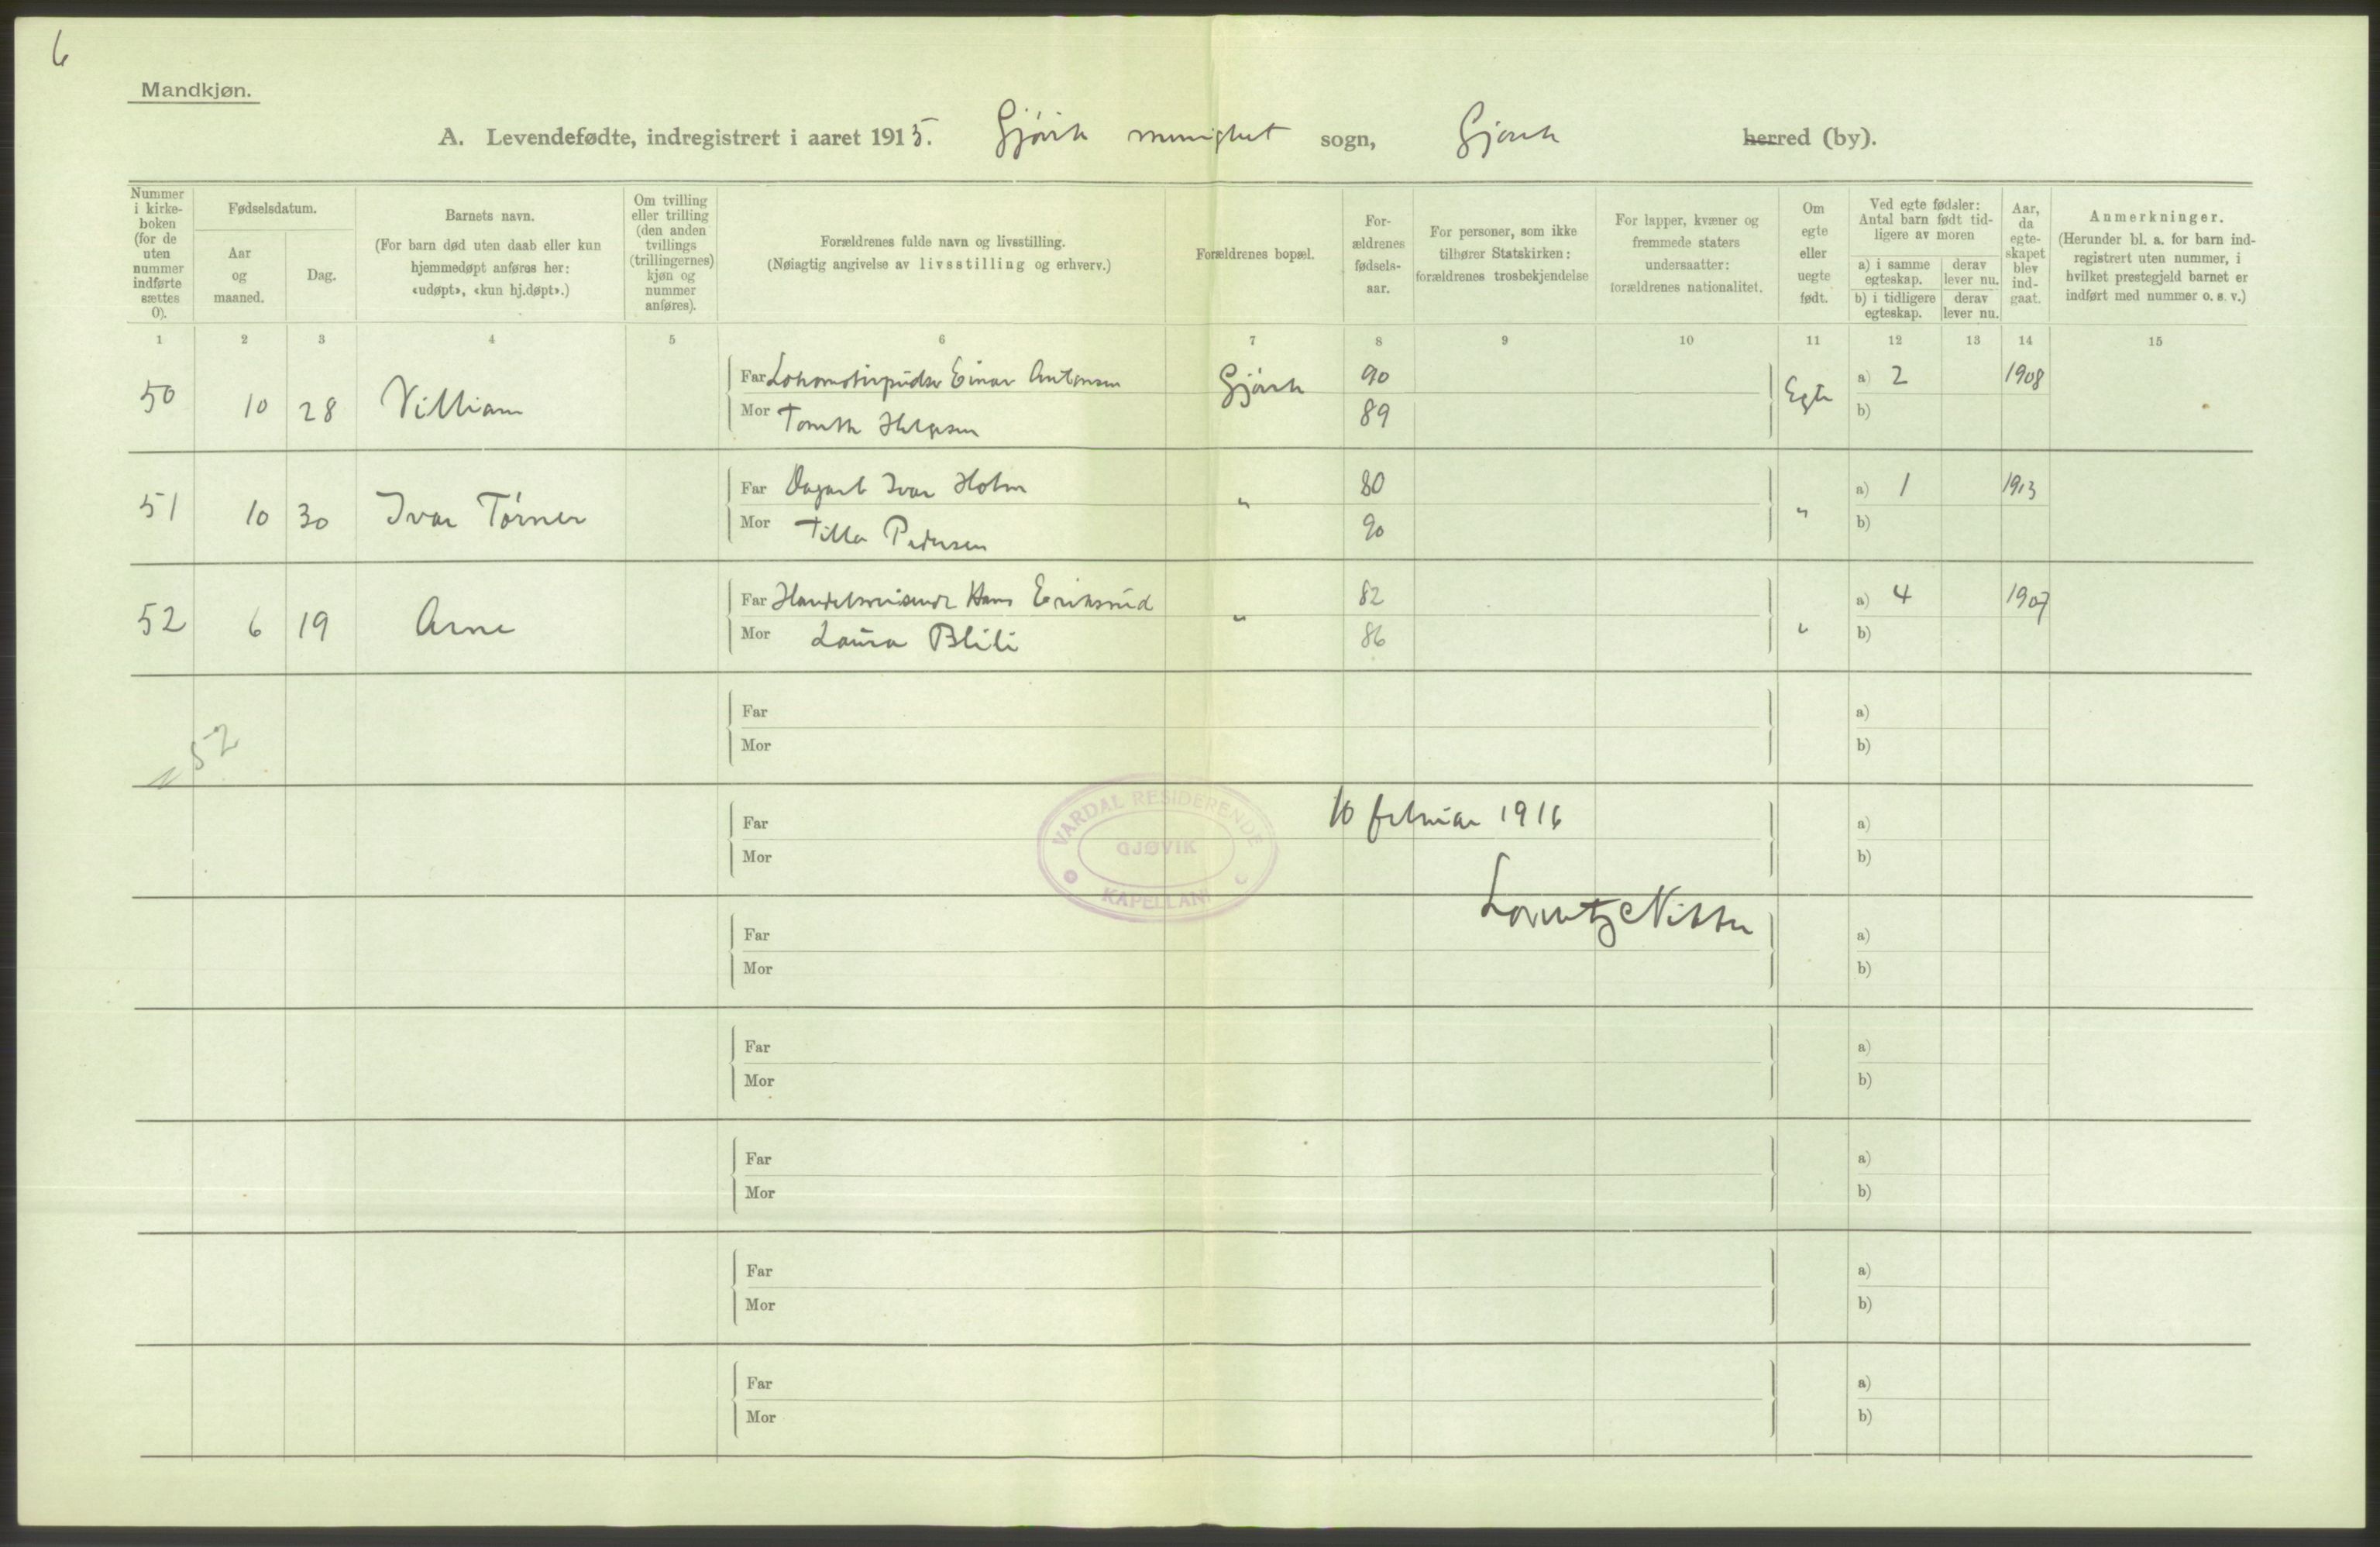 6
Mandkjøn.
A. Levendefødte, indregistrert i aaret 1915. Gjøvik menighet sogn, Gjøvik herred (by).
Nummer i kirke-boken (for de uten nummer indførte sættes 0).
Fødselsdatum.
Aar og maaned.
Dag.
Barnets navn.
(For barn død uten daab eller kun hjemmedøpt anføres her: «udøpt», «kun hj.døpt».)
Om tvilling eller trilling (den anden tvillings (trillingernes) kjøn og nummer anføres).
Forældrenes fulde navn og livsstilling.
(Nøiagtig angivelse av livsstilling og erhverv.)
Forældrenes bopæl.
For-ældrenes fødsels-aar.
For personer, som ikke tilhører Statskirken: forældrenes trosbekjendelse
For lapper, kvæner og fremmede staters undersaatter: forældrenes nationalitet.
Om egte eller uegte født.
Ved egte fødsler: Antal barn født tid-ligere av moren
a) i samme egteskap.
derav lever nu.
b) i tidligere egteskap.
derav lever nu.
Aar, da egte-skapet blev ind-gaat.
Anmerkninger.
(Herunder bl. a. for barn ind-registrert uten nummer, i hvilket prestegjeld barnet er indført med nummer o. s. v.)
1 2 3 4 5 6 7 8 9 10 11 12 13 14 15
50 10 28 William Far Lokomotivpudser Einar Antonsen Gjøvik 90 Egte a) 2 1908
Mor Helgesen 89 b)
51 10 30 Ivar Tórner Far Ivar Holm " 80 " a) 1 1913
Mor Tilla Pedersen 90 b)
52 6 19 Arne Far Handelsreisende Hans Eriksrud " 82 " a) 4 1907
Mor Laura Blili 86 b)
52
Far a)
Mor b)
VARDAL RESIDERENDE
GJØVIK
KAPELLANI
10 februar 1916
Far a)
Mor b)
Lorentz Nissen
Far a)
Mor b)
Far a)
Mor b)
Far a)
Mor b)
Far a)
Mor b)
Far a)
Mor b)